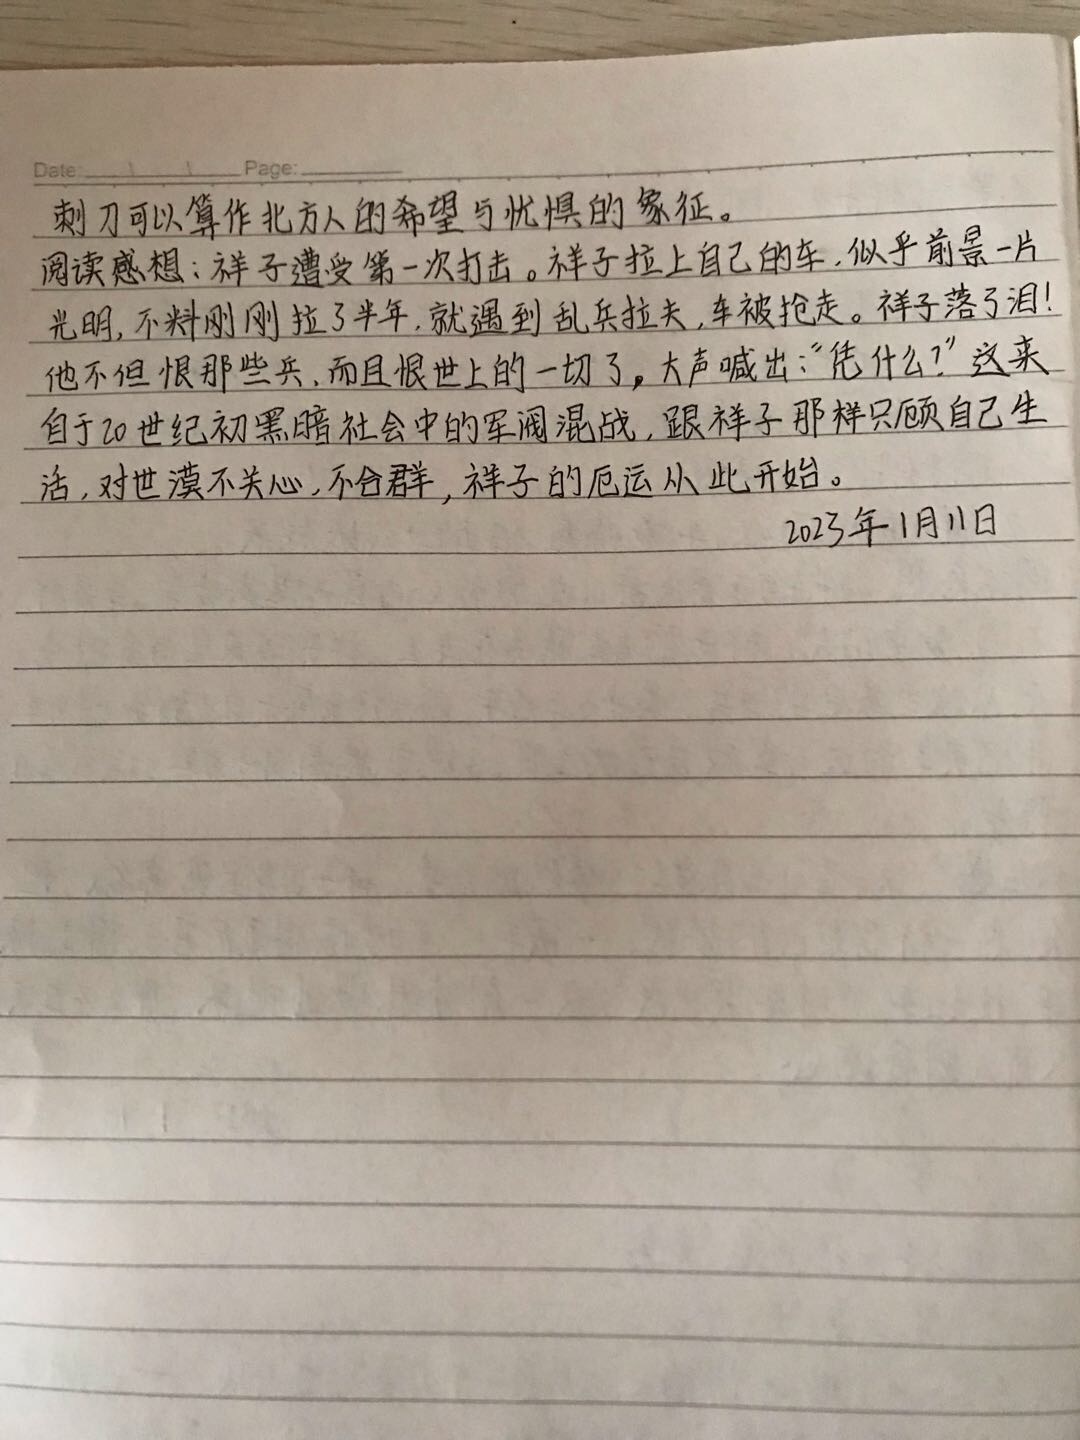 Date: \ \ Page:
刺刀可以算作北方人的希望与忧惧的象征。
阅读感想：祥子遭受第一次打击。祥子拉上自己的车，似乎前景一片
光明，不料刚刚拉了半年，就遇到乱兵拉夫，车被抢走。祥子落了泪！
他不但恨那些兵、而且恨世上的一切了。大声喊出：“凭什么？”这来
自于20世纪初黑暗社会中的军阀混战，跟祥子那样只顾自己生
活，对世漠不关心，不合群，祥子的厄运从此开始。
2023年1月11日